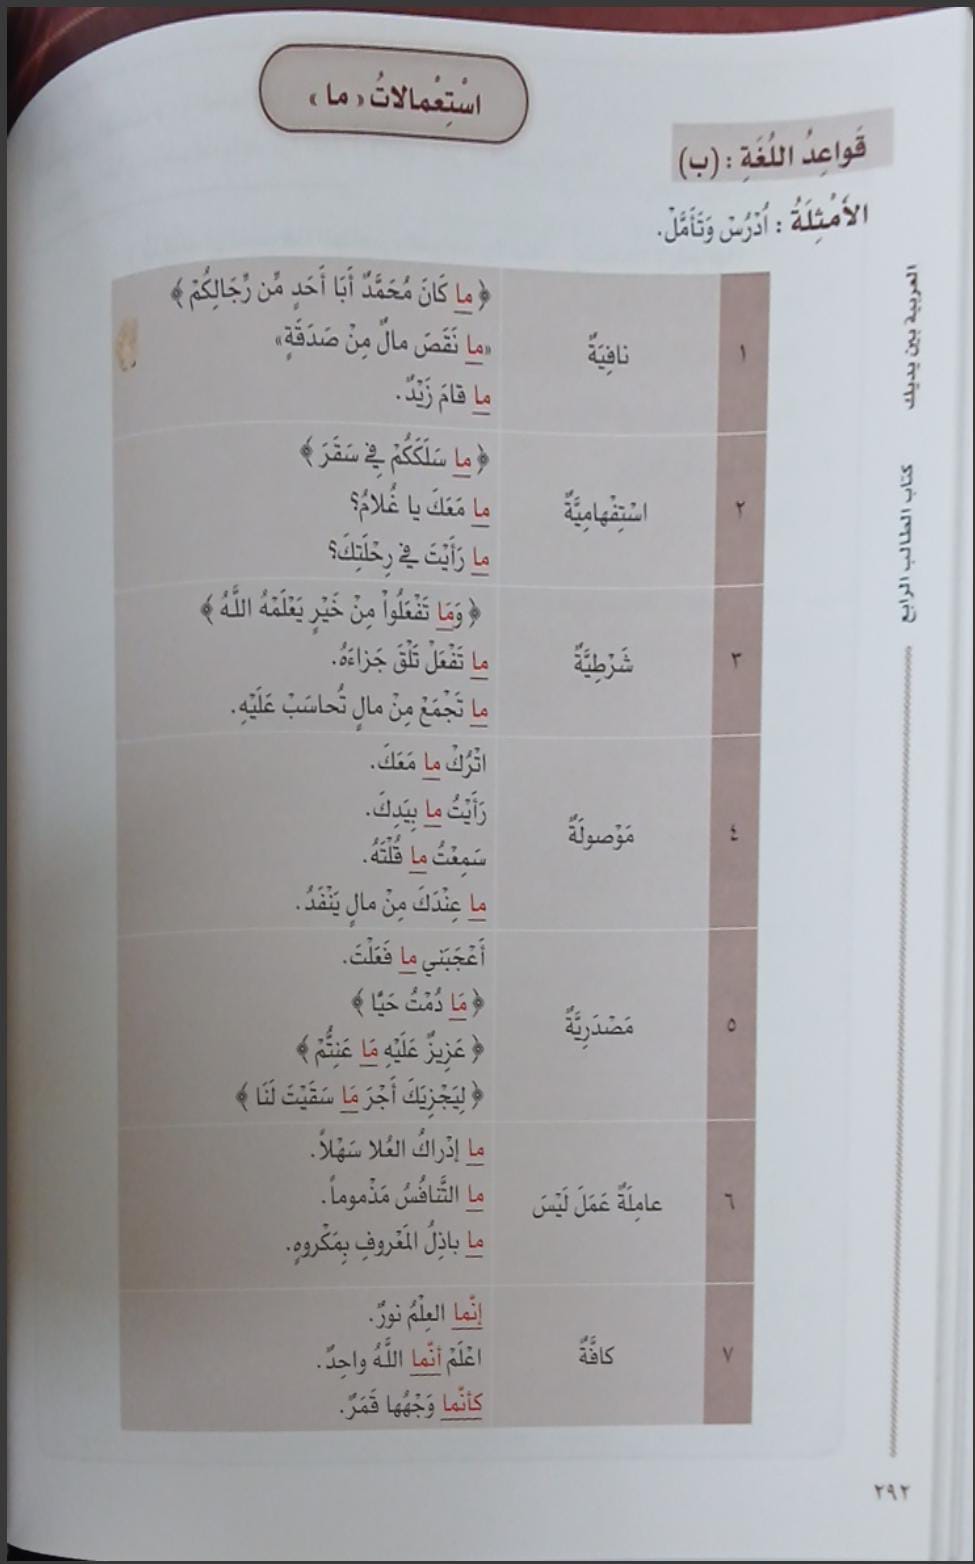 اسْتِعْمالاتُ « ما »
قَواعِدُ اللُغَةِ : (ب)
الأَمْثِلَةُ : اُدْرُسْ وَتَأَمَّلْ.
١
نافِيَةٌ
﴿ ما كَانَ مُحَمَّدٌ أَبَا أَحَدٍ مِّن رِّجَالِكُمْ ﴾
«ما نَقَصَ مالٌ مِنْ صَدَقَةٍ»
ما قامَ زَيْدٌ.
٢
اسْتِفْهامِيَّةٌ
﴿ ما سَلَكَكُمْ فِي سَقَرَ ﴾
ما مَعَكَ يا غُلامُ؟
ما رَأَيْتَ في رِحْلَتِكَ؟
٣
شَرْطِيَّةٌ
﴿ وَمَا تَفْعَلُواْ مِنْ خَيْرٍ يَعْلَمْهُ اللَّهُ ﴾
ما تَفْعَلْ تَلْقَ جَزاءَهُ.
ما تَجْمَعْ مِنْ مالٍ تُحاسَبْ عَلَيْهِ.
٤
مَوْصولَةٌ
اتْرُكْ ما مَعَكَ.
رَأَيْتُ ما بِيَدِكَ.
سَمِعْتُ ما قُلْتَهُ.
ما عِنْدَكَ مِنْ مالٍ يَنْفَدُ.
٥
مَصْدَرِيَّةٌ
أَعْجَبَني ما فَعَلْتَ.
﴿ مَا دُمْتُ حَيًّا ﴾
﴿ عَزِيزٌ عَلَيْهِ مَا عَنِتُّمْ ﴾
﴿ لِيَجْزِيَكَ أَجْرَ مَا سَقَيْتَ لَنَا ﴾
٦
عامِلَةٌ عَمَلَ لَيْسَ
ما إدْراكُ العُلا سَهْلاً.
ما التَّنافُسُ مَذْموماً.
ما باذِلُ المَعْروفِ بِمَكْروهٍ.
٧
كافَّةٌ
إنّما العِلْمُ نورٌ.
اعْلَمْ أنّما اللَّهُ واحِدٌ.
كأنّما وَجْهُها قَمَرٌ.
العربية بين يديك
كتاب الطالب الرابع
٢٩٢